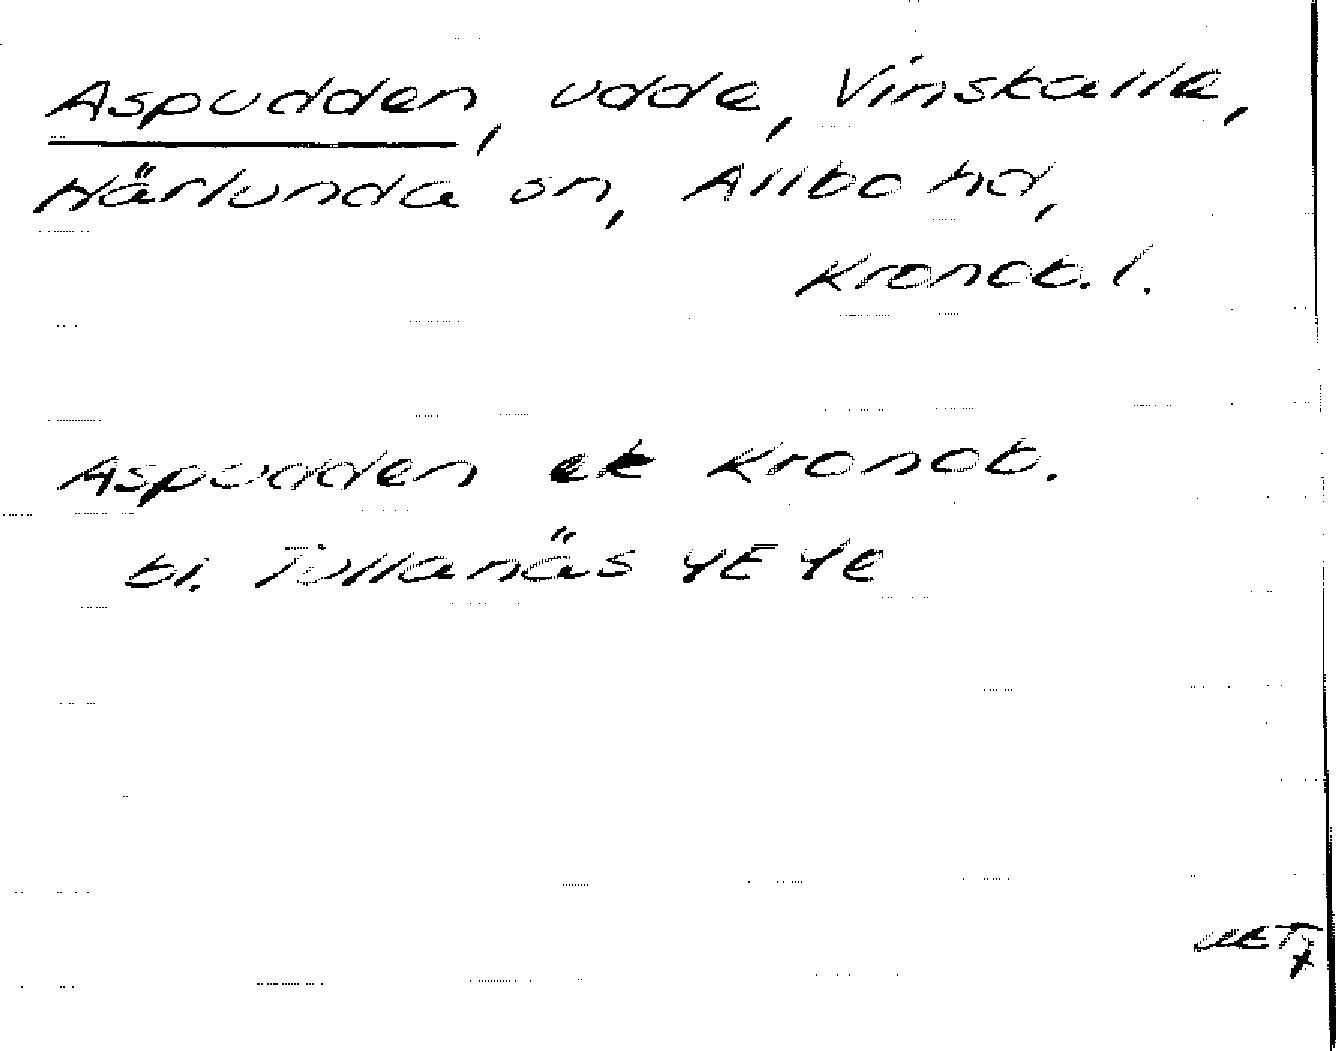 Aspudden, udde, Vinskalle,
Härlunda sn, Allbo hd,
Kronob. l.
Aspudden ek Kronob.
bl. Tullanäs 4E 4e